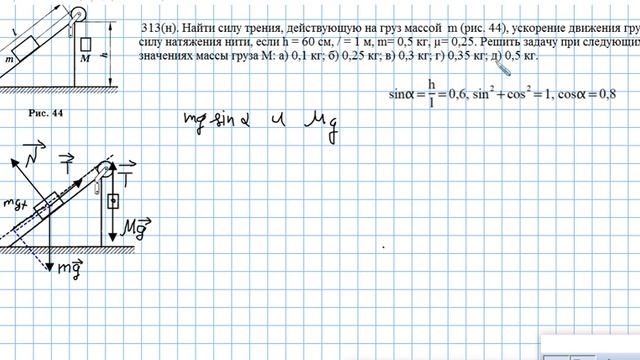 313(н). Найти силу трения, действующую на груз массой m (рис. 44), ускорение движения гру
силу натяжения нити, если h = 60 см, l = 1 м, m= 0,5 кг, μ= 0,25. Решить задачу при следующи
значениях массы груза M: а) 0,1 кг; б) 0,25 кг; в) 0,3 кг; г) 0,35 кг; д) 0,5 кг.
l
m
M
h
Рис. 44
sinα = h/l = 0,6, sin² + cos² = 1, cosα = 0,8
mg sin α и Mg
N
T
T
mgx
Mg
mg